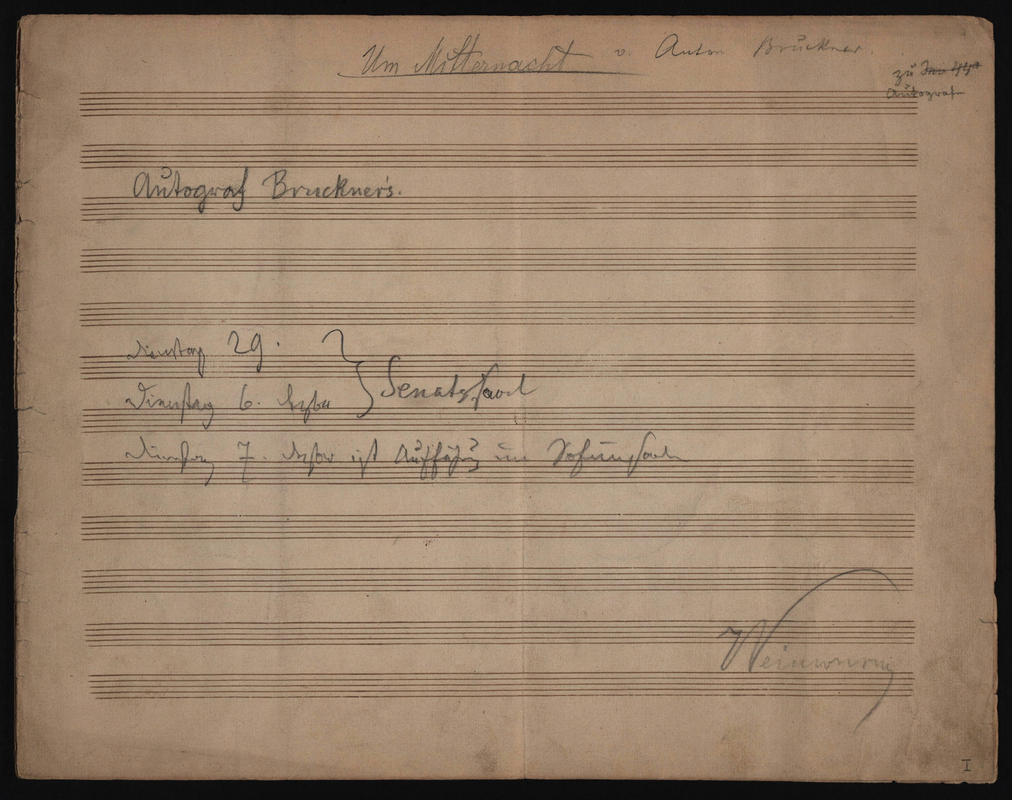 Um Mitternacht v. Anton Bruckner.
zu
Autograf
Autograf Bruckner's.
Dienstag 29.
Dienstag 6.
Senatssaal
7. ist Aufführg im
Weinwurm
I